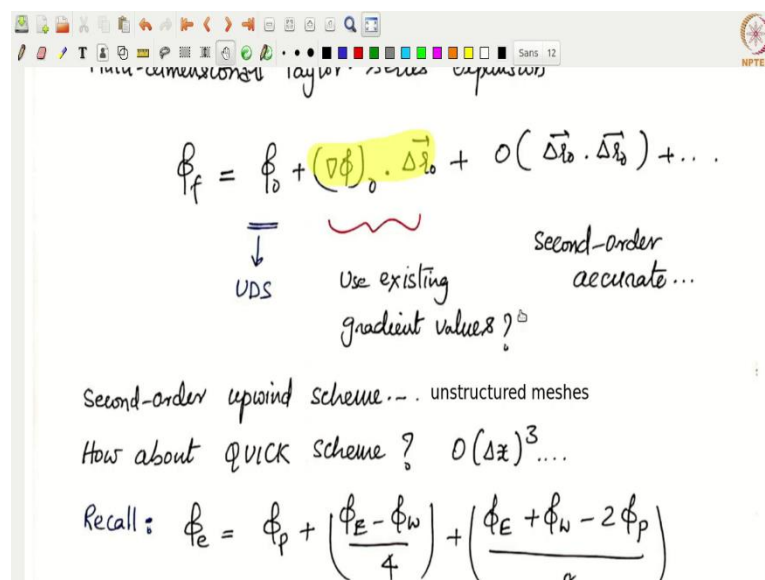 Sans 12
NPTE
Multi-dimensional Taylor-series expansion
ϕ_f = ϕ_0 + (∇ϕ)_0 . Δr⃗_0 + O(Δr⃗_0 . Δr⃗_0) + ....
UDS
Use existing
gradient values?
Second-order
accurate...
Second-order upwind scheme.... unstructured meshes
How about QUICK scheme? O(Δx)^3....
Recall: ϕ_e = ϕ_p + (ϕ_E - ϕ_W / 4) + (ϕ_E + ϕ_W - 2ϕ_P /